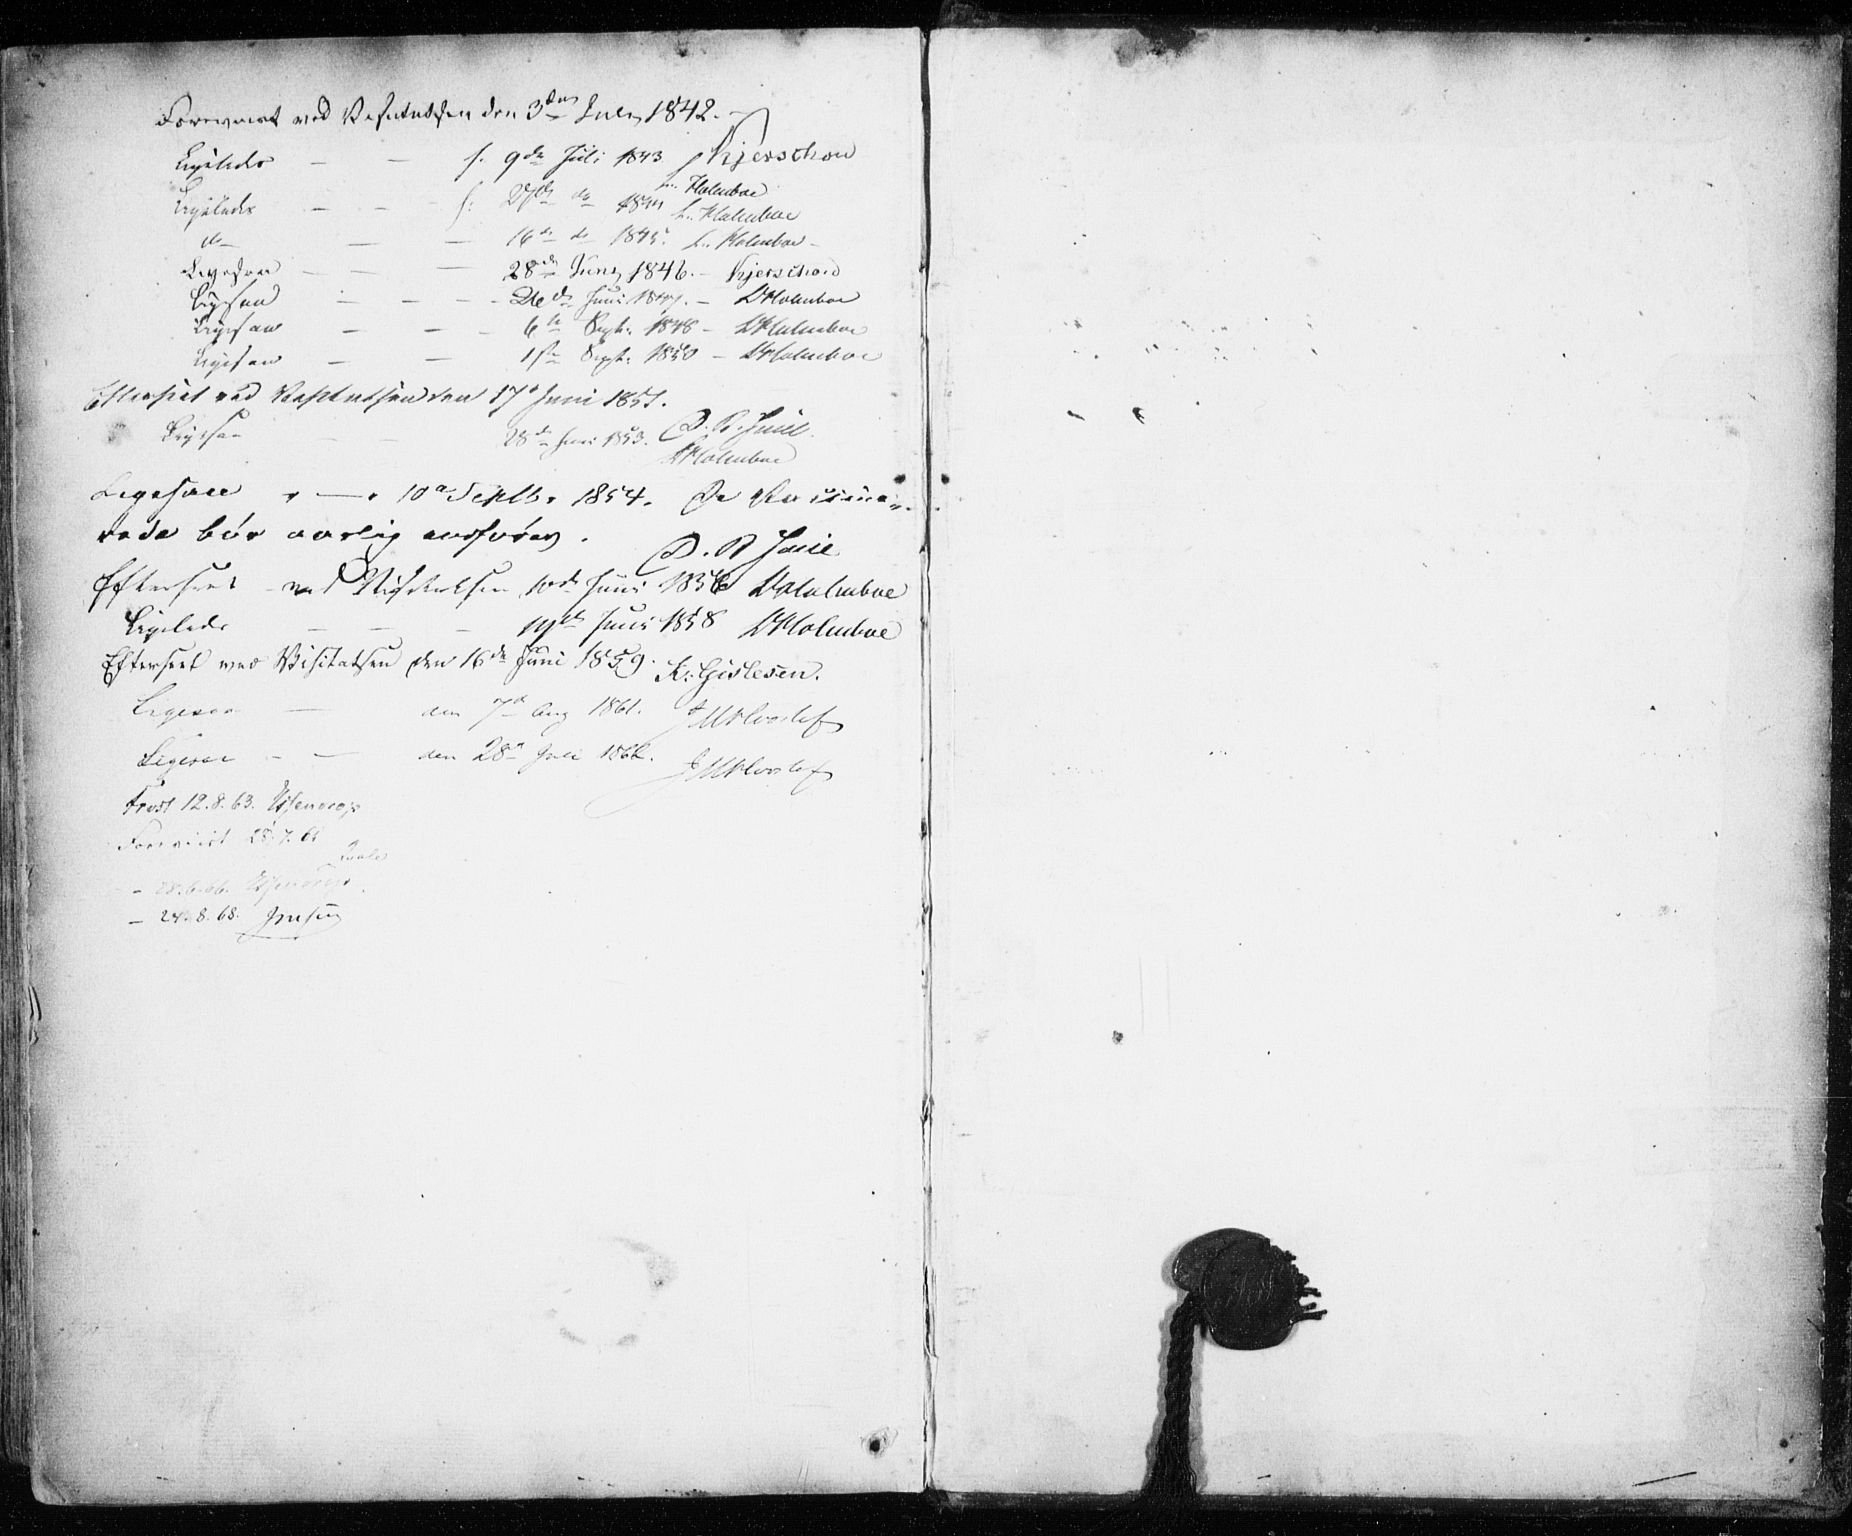 Foreviist ved Visitatsen den 3den July 1842. Kjerschow
Ligeledes — — s. 9de Juli 1843 L. Holmboe
Ligeledes — — s: 27de do 1844 L. Holmboe
do — — 16de do 1845. L. Holmboe
Ligesaa — — 28de Juny 1846. Kjerschow
Ligesaa — — Juni 1847. — LHolmboe
Ligesaa — — 6te Septr. 1848 — LHolmboe
Ligesaa — — 1ste Septr. 1850 — LHolmboe
Efterseet ved Visitatsen den 17de Juni 1851.
Ligesaa — — 28de Juni 1853. D. B. Juell
LHolmboe
Ligesaa " — " 10de Septbr 1854. De
bør aarlig anføres. D. B. Juell
Efterseet ved Visitatsen 10de Juni 1856 LHolmboe
Ligeledes — — Juni 1858 LHolmboe
Efterseet ved Visitatsen den 16de Juni 1859. K. Gislesen.
Ligesaa — den 7de Aug 1861. JMKloster
Ligesaa — — den 28de Juli 1862. JMKloster
Trost 12.8.63.
Foreviist 28.7.65
— 28.6.66.
— 24.8.68. Jensen